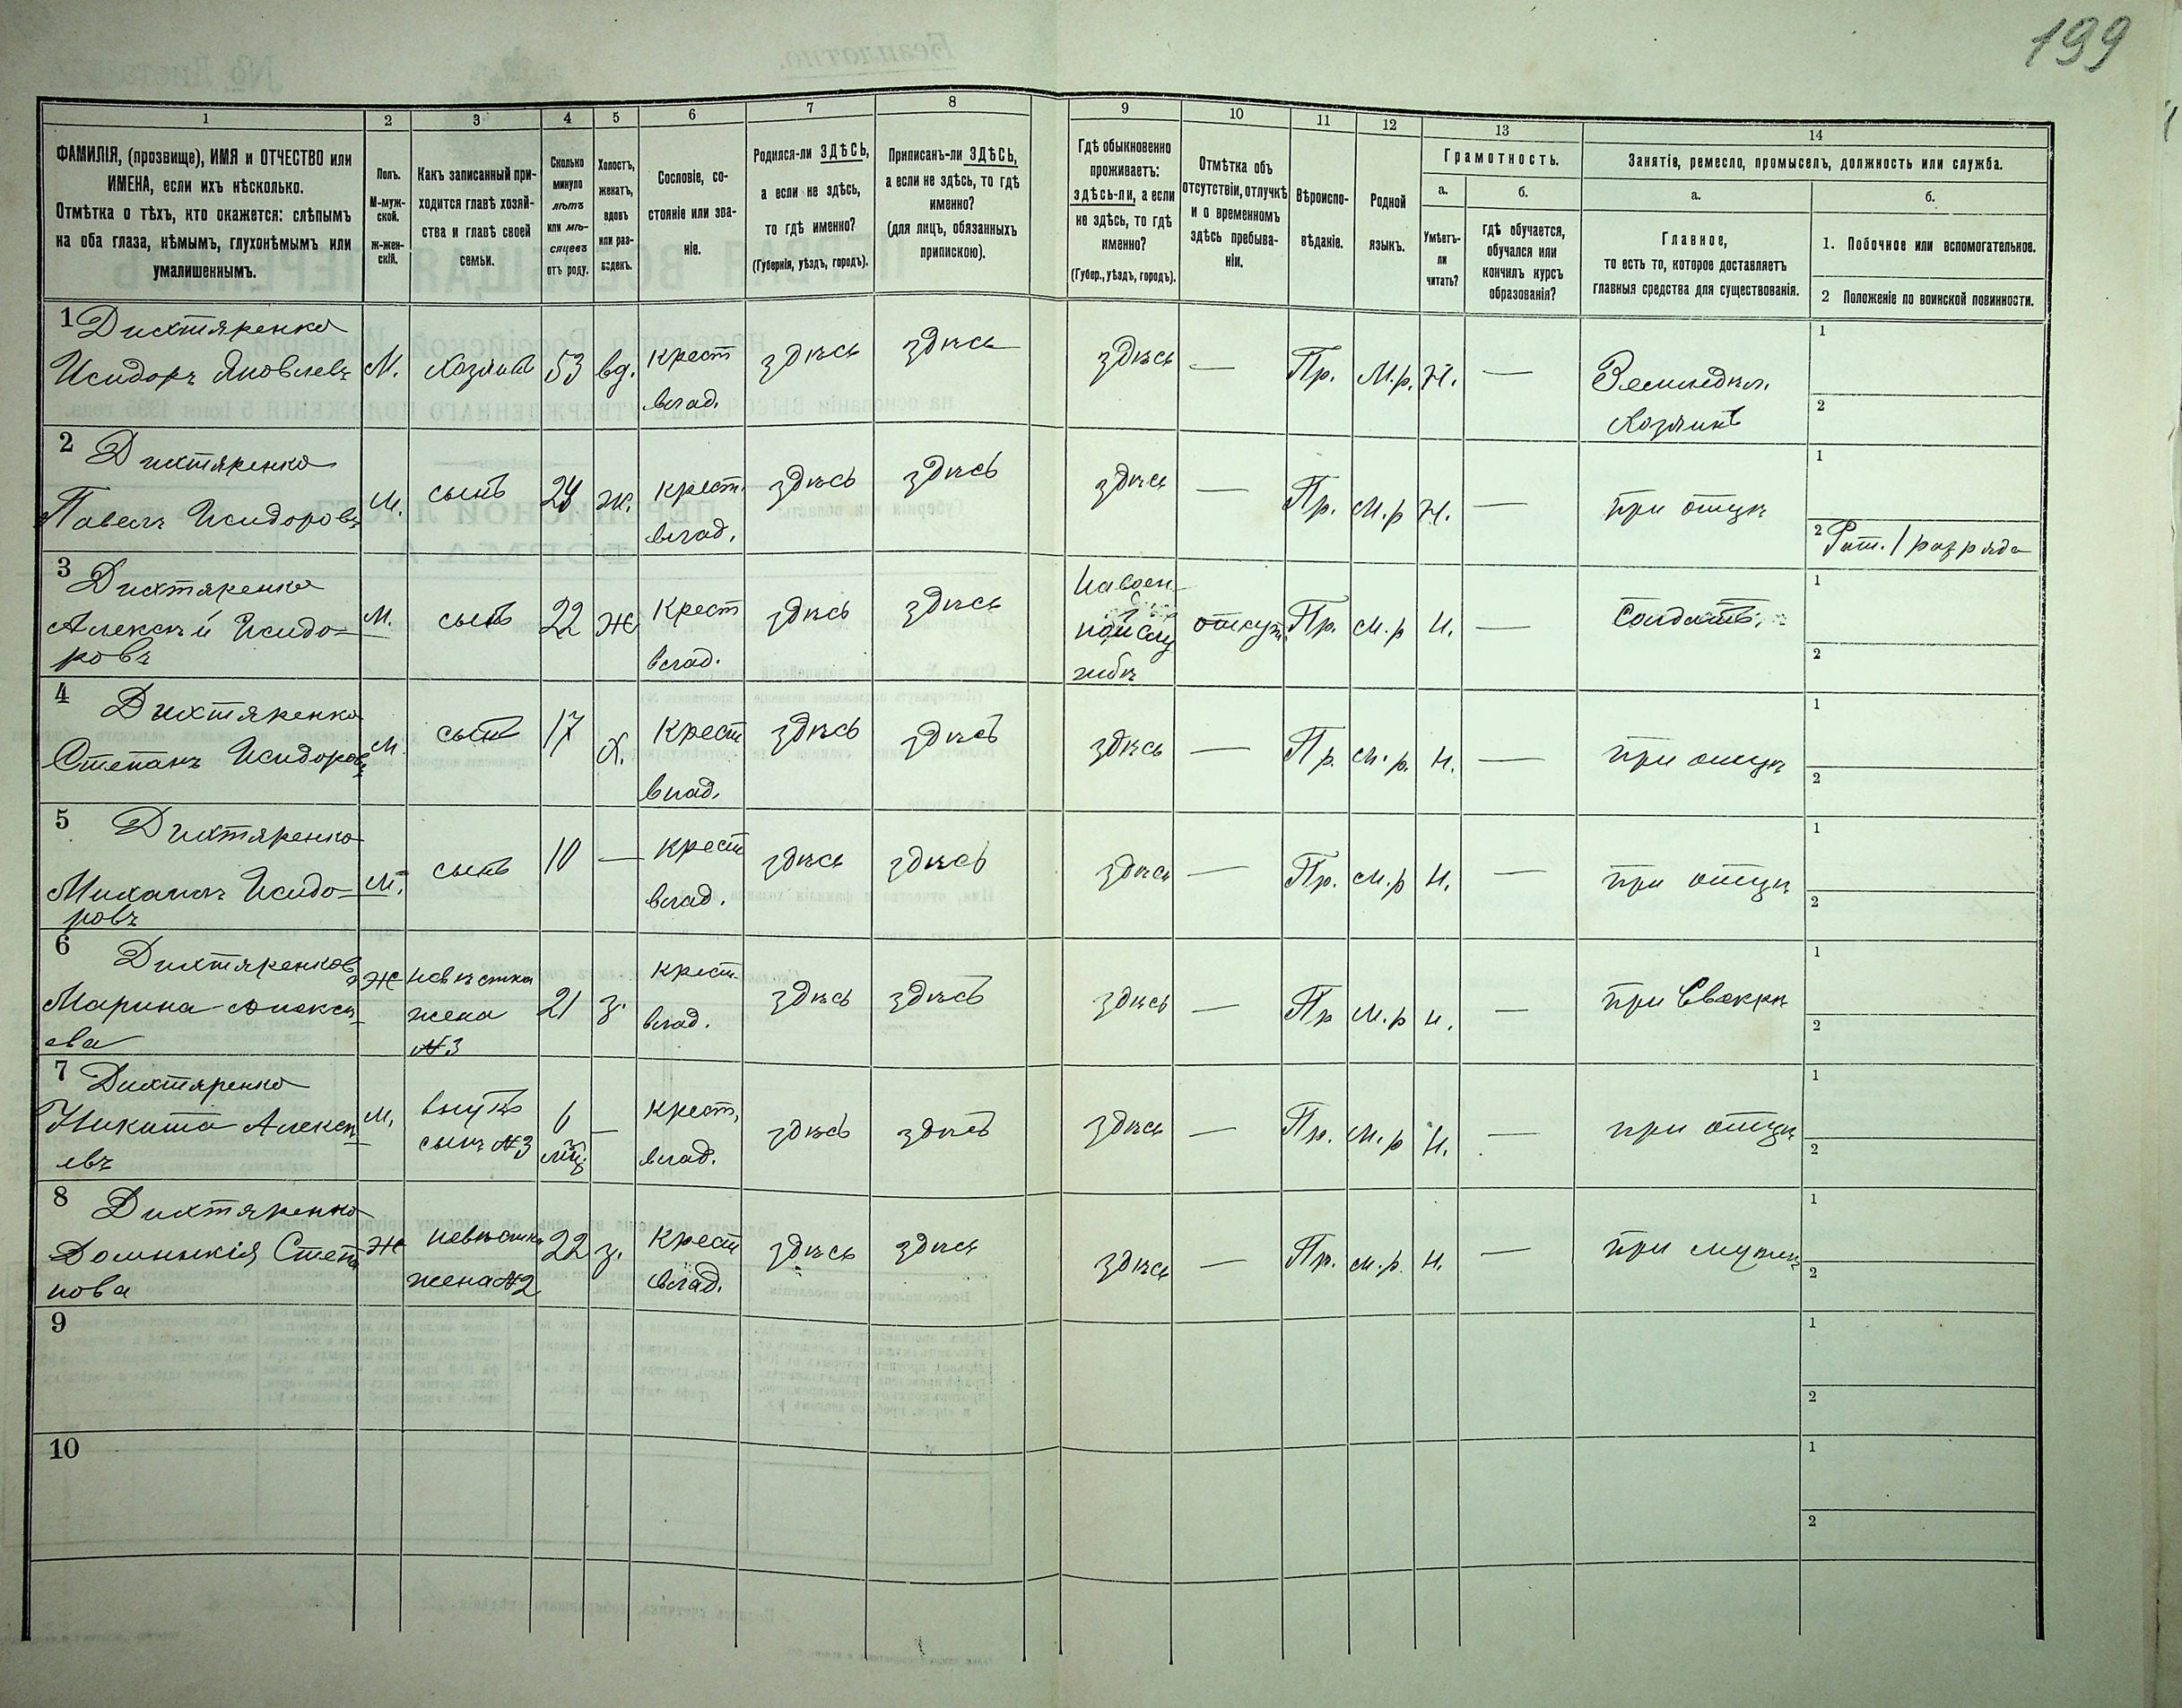 199
1
2
3
4
5
6
7
8
9
10
11
12
13
14
ФАМИЛІЯ, (прозвище), ИМЯ и ОТЧЕСТВО или
ИМЕНА, если ихъ нѣсколько.
Отмѣтка о тѣхъ, кто окажется: слѣпымъ
на оба глаза, нѣмымъ, глухонѣмымъ или
умалишеннымъ.
Полъ.
М-муж-
ской.
Ж-жен-
скій.
Какъ записанный при-
ходится главѣ хозяй-
ства и главѣ своей
семьи.
Сколько
минуло
лѣтъ
или мѣ-
сяцевъ
отъ роду.
Холостъ,
женатъ,
вдовъ
или раз-
веденъ.
Сословіе, со-
стояніе или зва-
ніе.
Родился-ли ЗДѢСЬ,
а если не здѣсь,
то гдѣ именно?
(Губернія, уѣздъ, городъ).
Приписанъ-ли ЗДѢСЬ,
а если не здѣсь, то гдѣ
именно?
(для лицъ, обязанныхъ
припискою).
Гдѣ обыкновенно
проживаетъ:
здѣсь-ли, а если
не здѣсь, то гдѣ
именно?
(Губер., уѣздъ, городъ).
Отмѣтка объ
отсутствіи, отлучкѣ
и о временномъ
здѣсь пребыва-
ніи.
Вѣроиспо-
вѣданіе.
Родной
языкъ.
Грамотность.
а.
Умѣетъ-
ли
читать?
б.
гдѣ обучается,
обучался или
кончилъ курсъ
образованія?
Занятіе, ремесло, промыселъ, должность или служба.
а.
Главное,
то есть то, которое доставляетъ
главныя средства для существованія.
б.
1. Побочное или вспомогательное.
2 Положеніе по воинской повинности.
1 Дихтяренко
Исидоръ Яковлевъ М. хозяинъ 53 вд. крест здѣсь здѣсь здѣсь — Пр. М.р. Н. — Земледѣл.
влад.
хозяинъ
1
2
2 Дихтяренко
Павелъ Исидоровъ М. сынъ 24 ж. крест. здѣсь здѣсь здѣсь — Пр. М.р Н. — при отцѣ
влад.
1
2 Рат. 1 разряда
3 Дихтяренко
Алексѣй Исидо- М. сынъ 22 ж крест здѣсь здѣсь На воен- Пр. м.р Н. — Солдатъ
ровъ
влад.
ной слу
жбѣ
1
2
4 Дихтяренко
Степанъ Исидоровъ М. сынъ 17 х. крест здѣсь здѣсь здѣсь — Пр. м.р. Н. — при отцѣ
влад.
1
2
5 Дихтяренко
Михаилъ Исидо- М. сынъ 10 — крест здѣсь здѣсь здѣсь — Пр. м.р Н. — при отцѣ
ровъ
влад.
1
2
6 Дихтяренкова
Марина Алексѣ- Ж невѣстка 21 з. крест. здѣсь здѣсь здѣсь — Пр М.р н. — при Свекрѣ
ева
жена
№3
влад.
1
2
7 Дихтяренко
Никита Алексѣ- М. внукъ 6 — крест. здѣсь здѣсь здѣсь — Пр. м.р Н. — при отцѣ
евъ
сынъ №3 мц.
влад.
1
2
8 Дихтяренко
Домникія Степа Ж невѣстка 22 з. крест здѣсь здѣсь здѣсь — Пр. м.р. Н. — при мужѣ
нова
жена №2
влад.
1
2
9
1
2
10
1
2